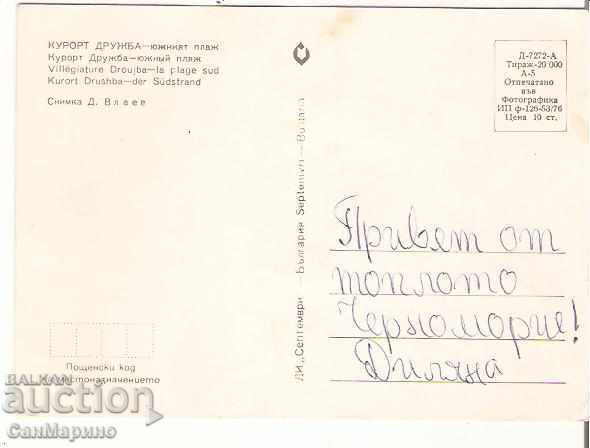 КУРОРТ ДРУЖБА—южният плаж
Курорт Дружба—южный пляж
Villégiature Droujba—la plage sud
Kurort Drushba—der Südstrand
Снимка Д. Влаев
Пощенски код
местоназначението
ЛИ „Септември — България Septemvri — Bulgaria
Д-7272-А
Тираж-20 000
А-5
Отпечатано
във
Фотографика
ИП ф-126-53/76
Цена 10 ст.
Привет от
топлото
Черноморие!
Диляна
BALKAN
auction
СанМарино